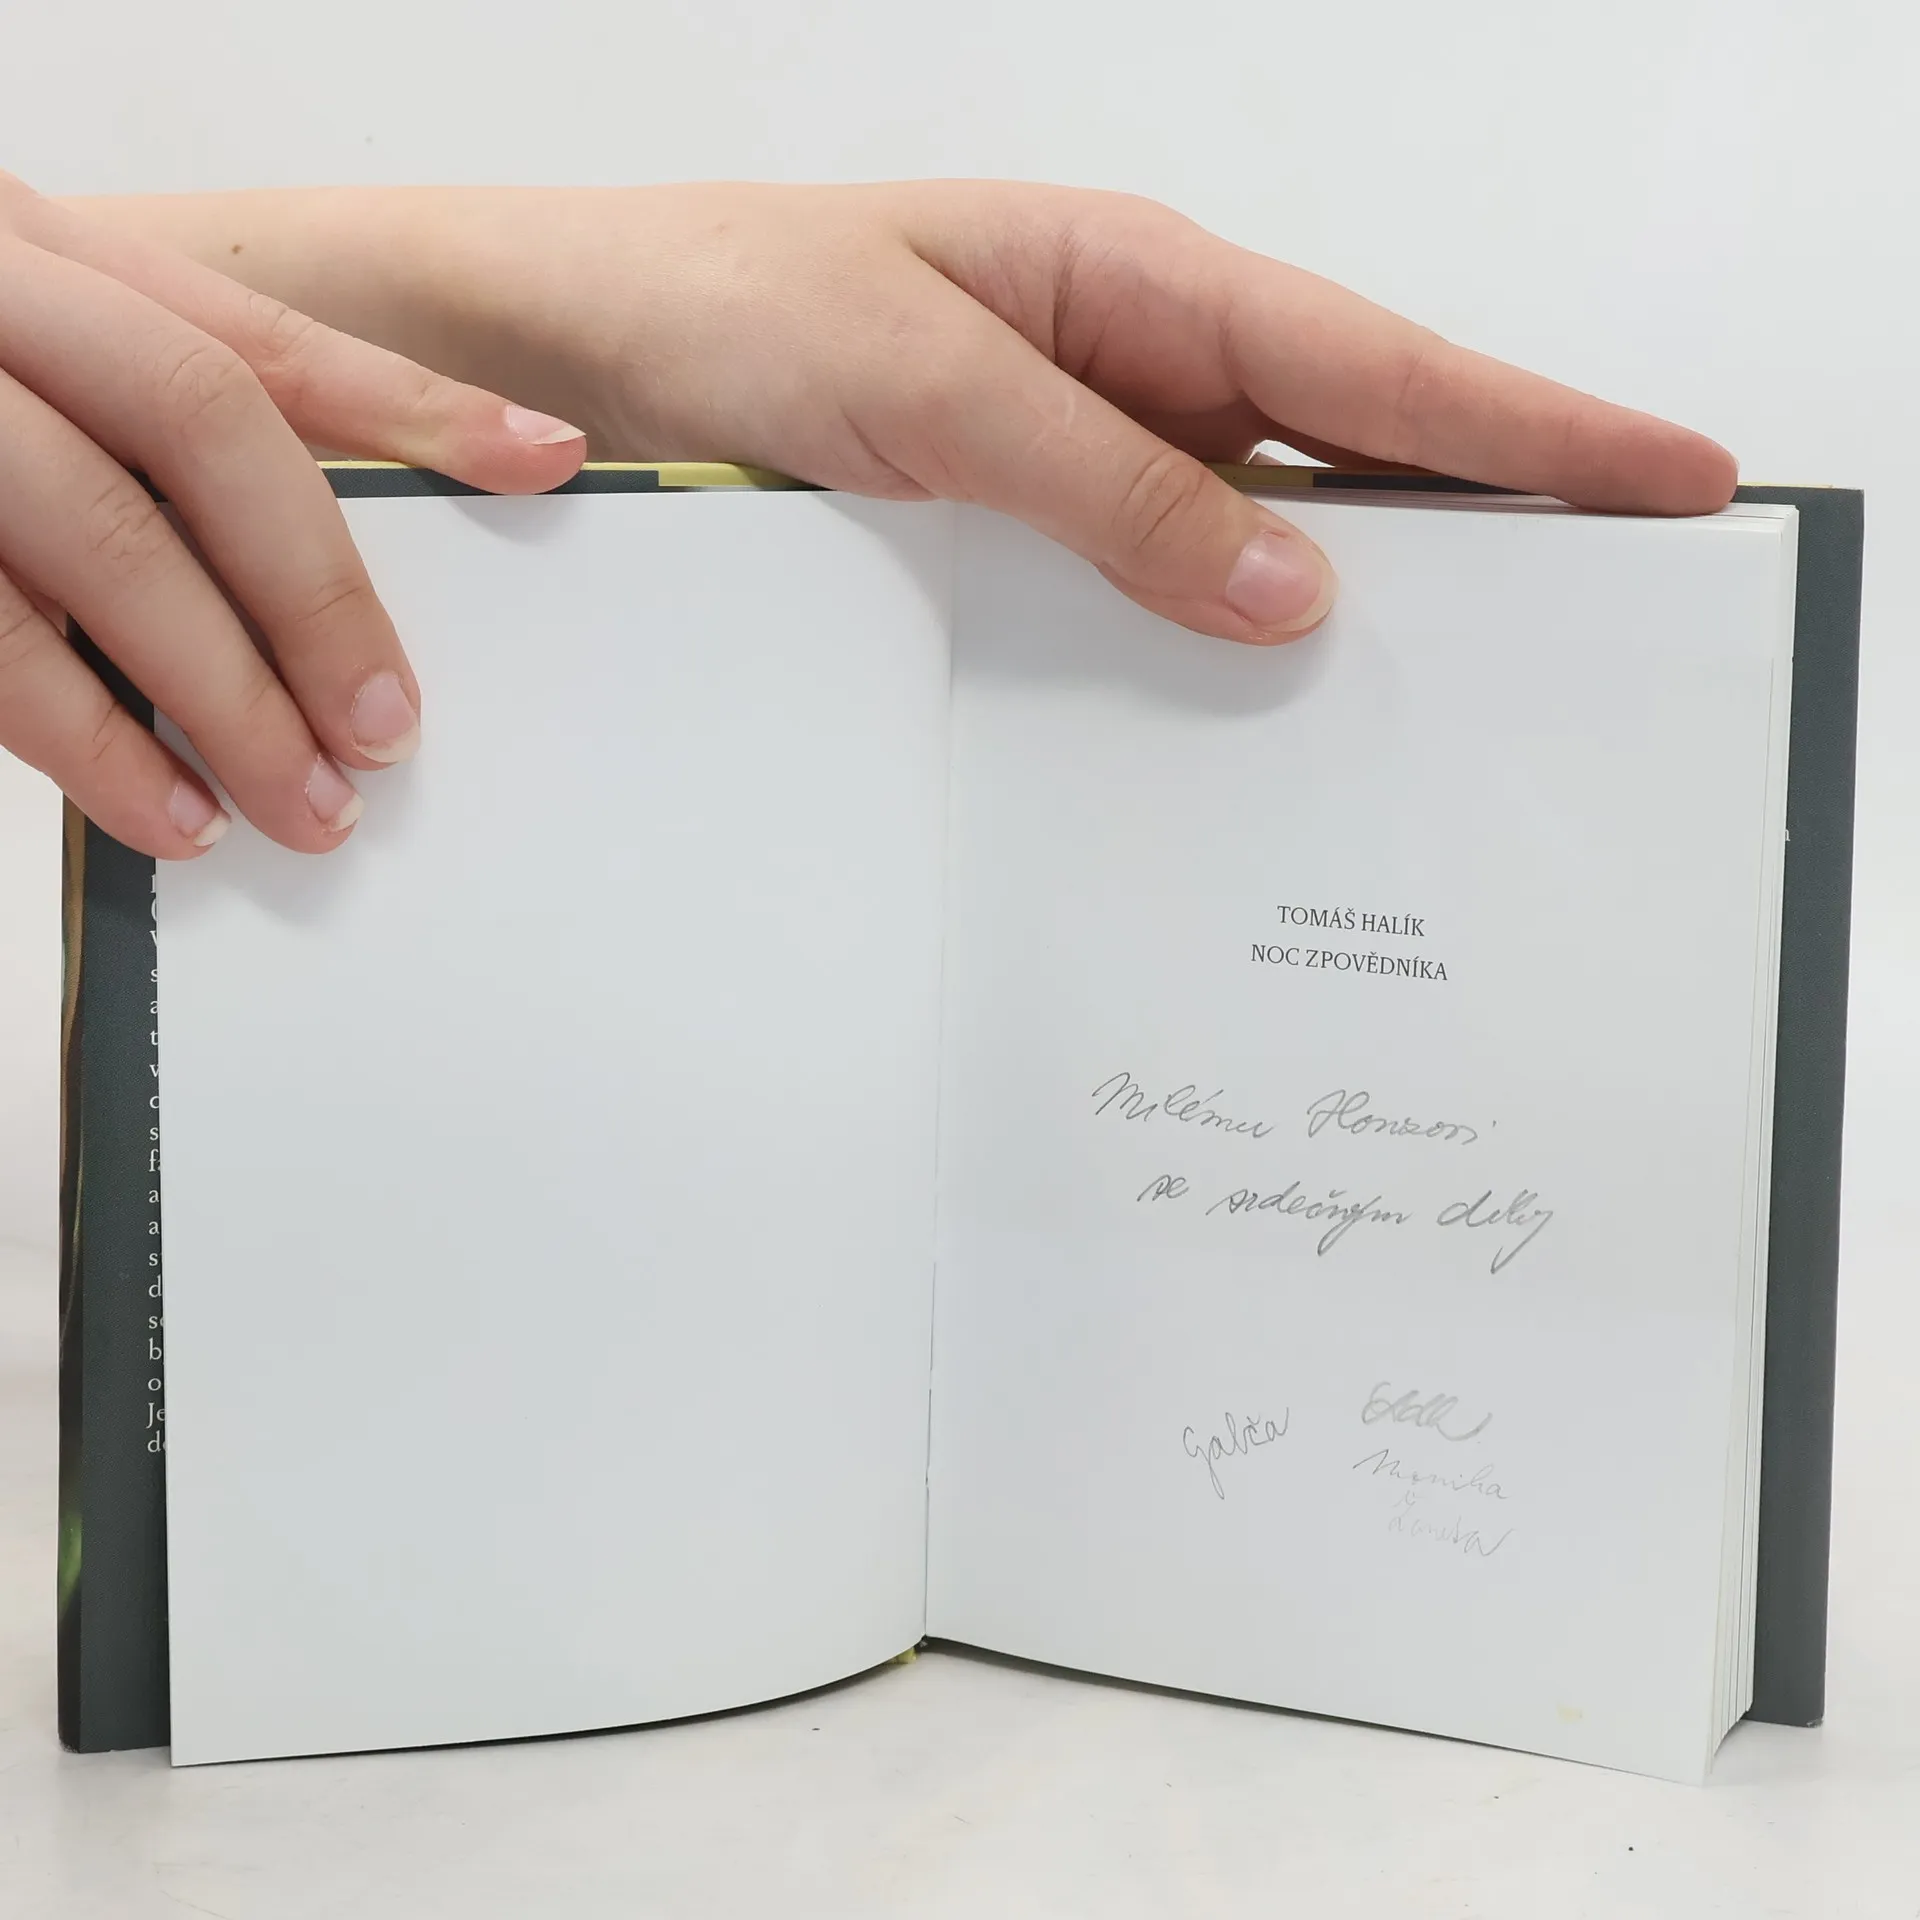 TOMÁŠ HALÍK
NOC ZPOVĚDNÍKA
Milému Honzovi
se srdečným díky
Gabča
Monika
Žaneta